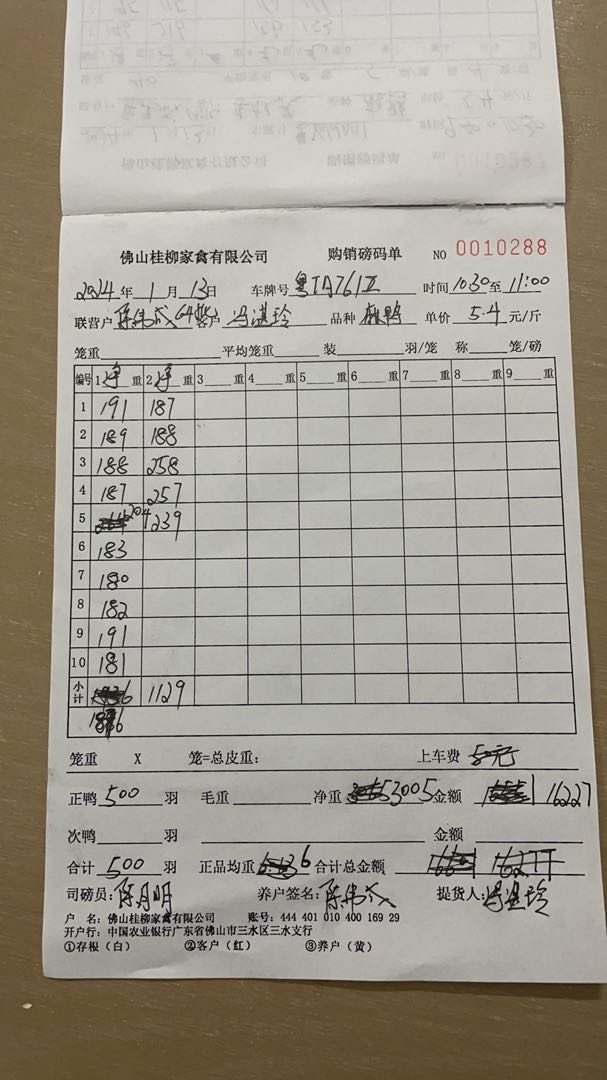 佛山桂柳家禽有限公司 购销磅码单 NO 0010288
2024 年 1 月 13 日 车牌号 时间 1030 至 11:00
联营户 陈伟成 客户 冯湛玲 品种 麻鸭 单价 5.4 元/斤
笼重 平均笼重 装 羽/笼 称 笼/磅
编号 1 净 重 2 净 重 3 重 4 重 5 重 6 重 7 重 8 重 9 重
1 191 187
2 189 188
3 188 258
4 187 257
5 204 239
6 183
7 180
8 182
9 191
10 181
小计 1129
1876
笼重 X 笼=总皮重: 上车费 50元
正鸭 500 羽 毛重 净重 3005 金额 16227
次鸭 羽 金额
合计 500 羽 正品均重 合计总金额
司磅员: 陈月明 养户签名: 陈伟成 提货人: 冯湛玲
户 名: 佛山桂柳家禽有限公司 账号: 444 401 010 400 169 29
开户行: 中国农业银行广东省佛山市三水区三水支行
①存根（白） ②客户（红） ③养户（黄）